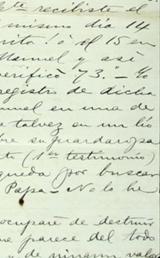 te recibiste el
mismo dia 14
nito! ó el 15 en
Manuel y asi
verificó 73. — Yo
registro de dicha
nuel en una de
talvez en un lio
su guardaropa
te (1er testimonio)
queda (por buscar
Papa. No lo he
ocuparé de destruir
ue parece del todo
y de ninaun valor